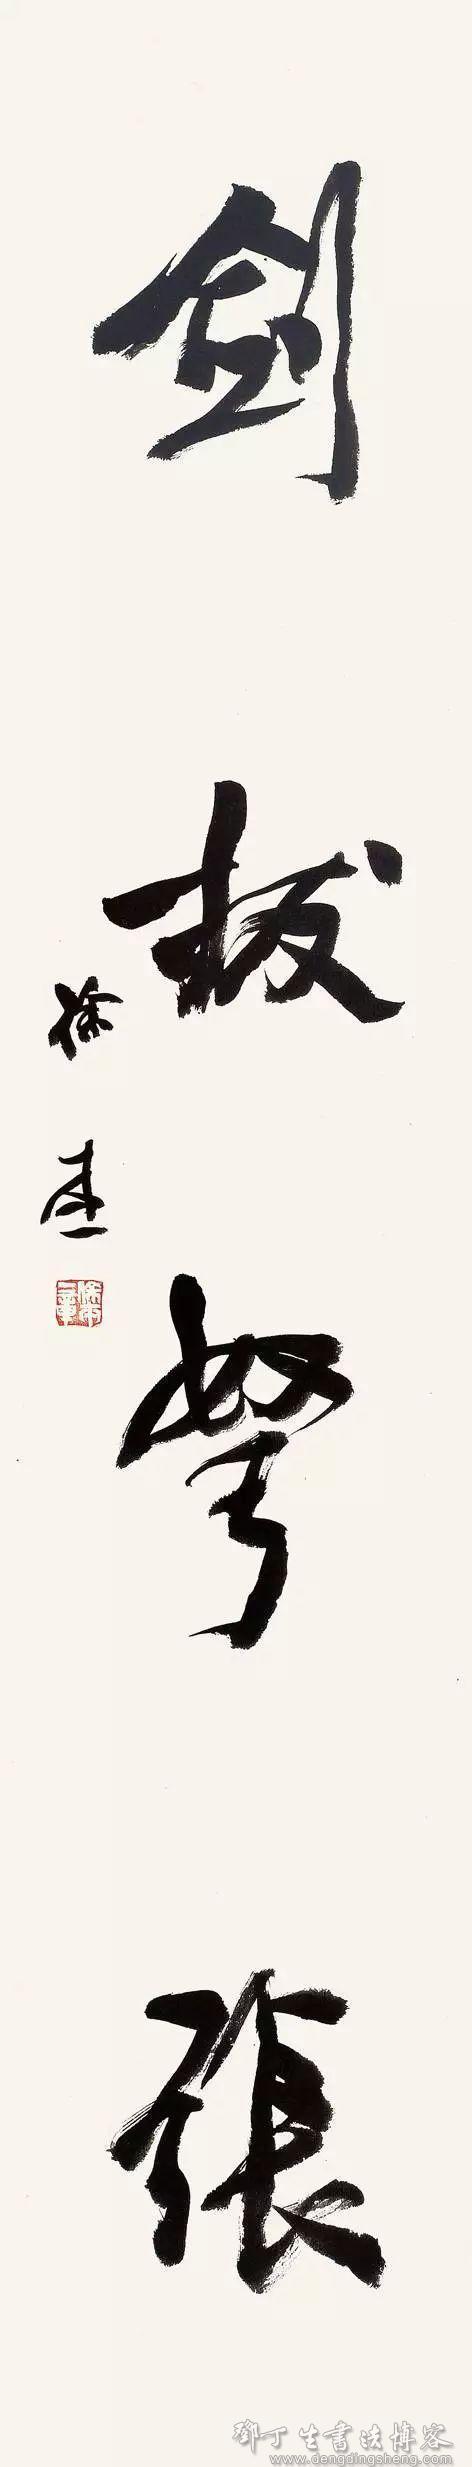 劍拔弩張
徐本一
徐本一章
鄧丁生書法博客
www.dengdingsheng.com